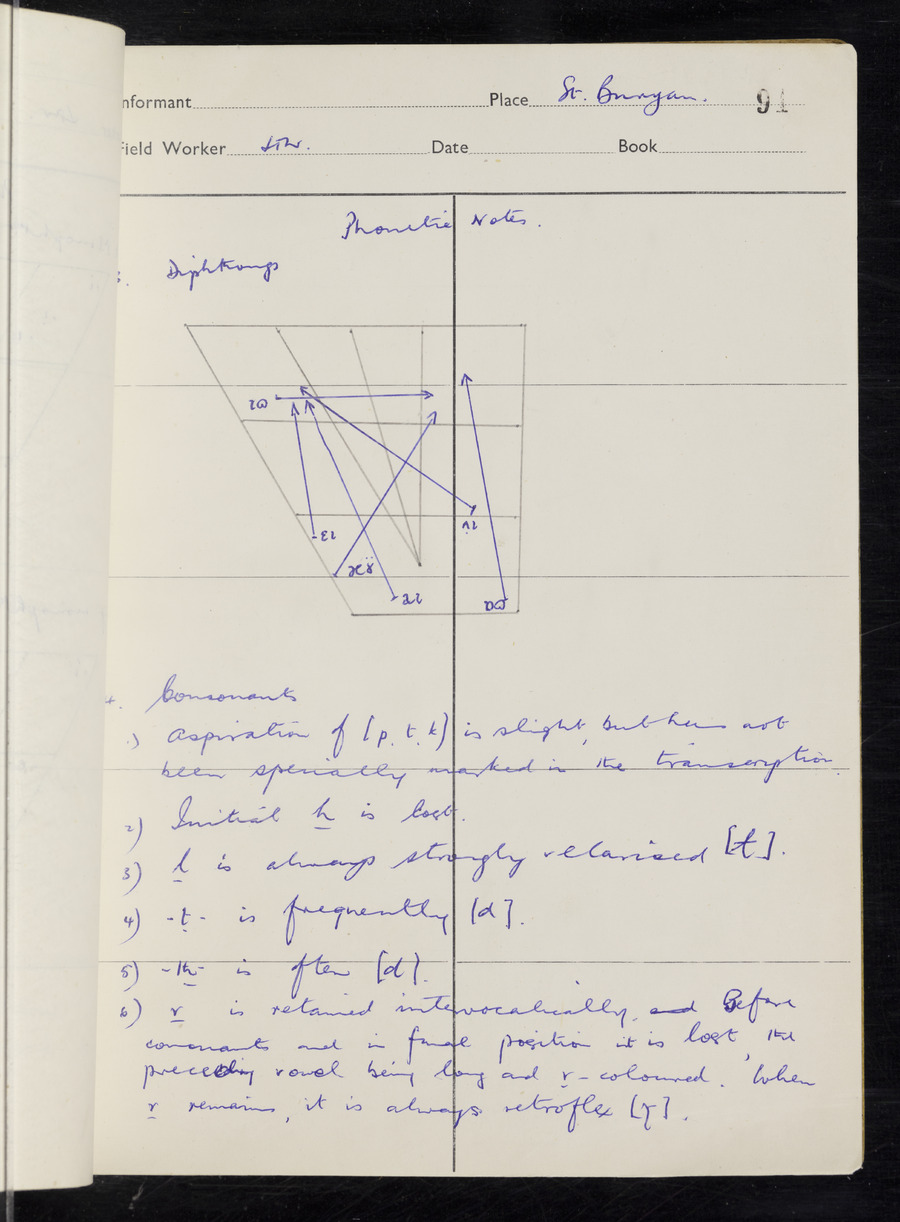 nformant Place St. Buryan. 91
Field Worker Date Book
Phonetic Notes.
3. Diphthongs
4. Consonants
1) Aspiration of [p, t, k] is slight, but has not
been specially marked in the transcription.
2) Initial h is lost.
3) l is always strongly velarised [ɫ].
4) -t- is frequently [d].
5) -th- is often [d].
6) r is retained intervocalically, and Before
consonants and in final position it is lost, the
preceding vowel being long and r-coloured. When
r remains, it is always retroflex [ɻ].